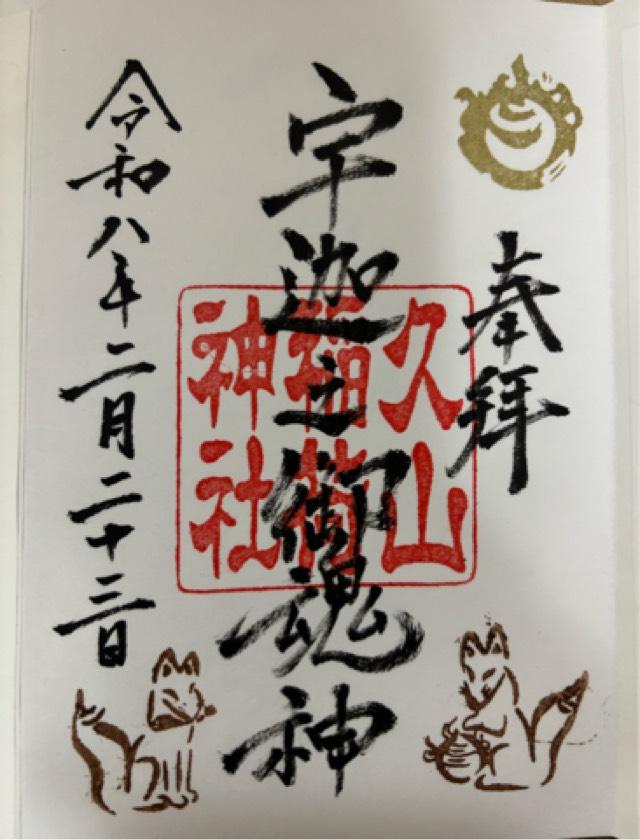 奉拝
宇迦之御魂神
久山
稲荷
神社
令和八年二月二十三日